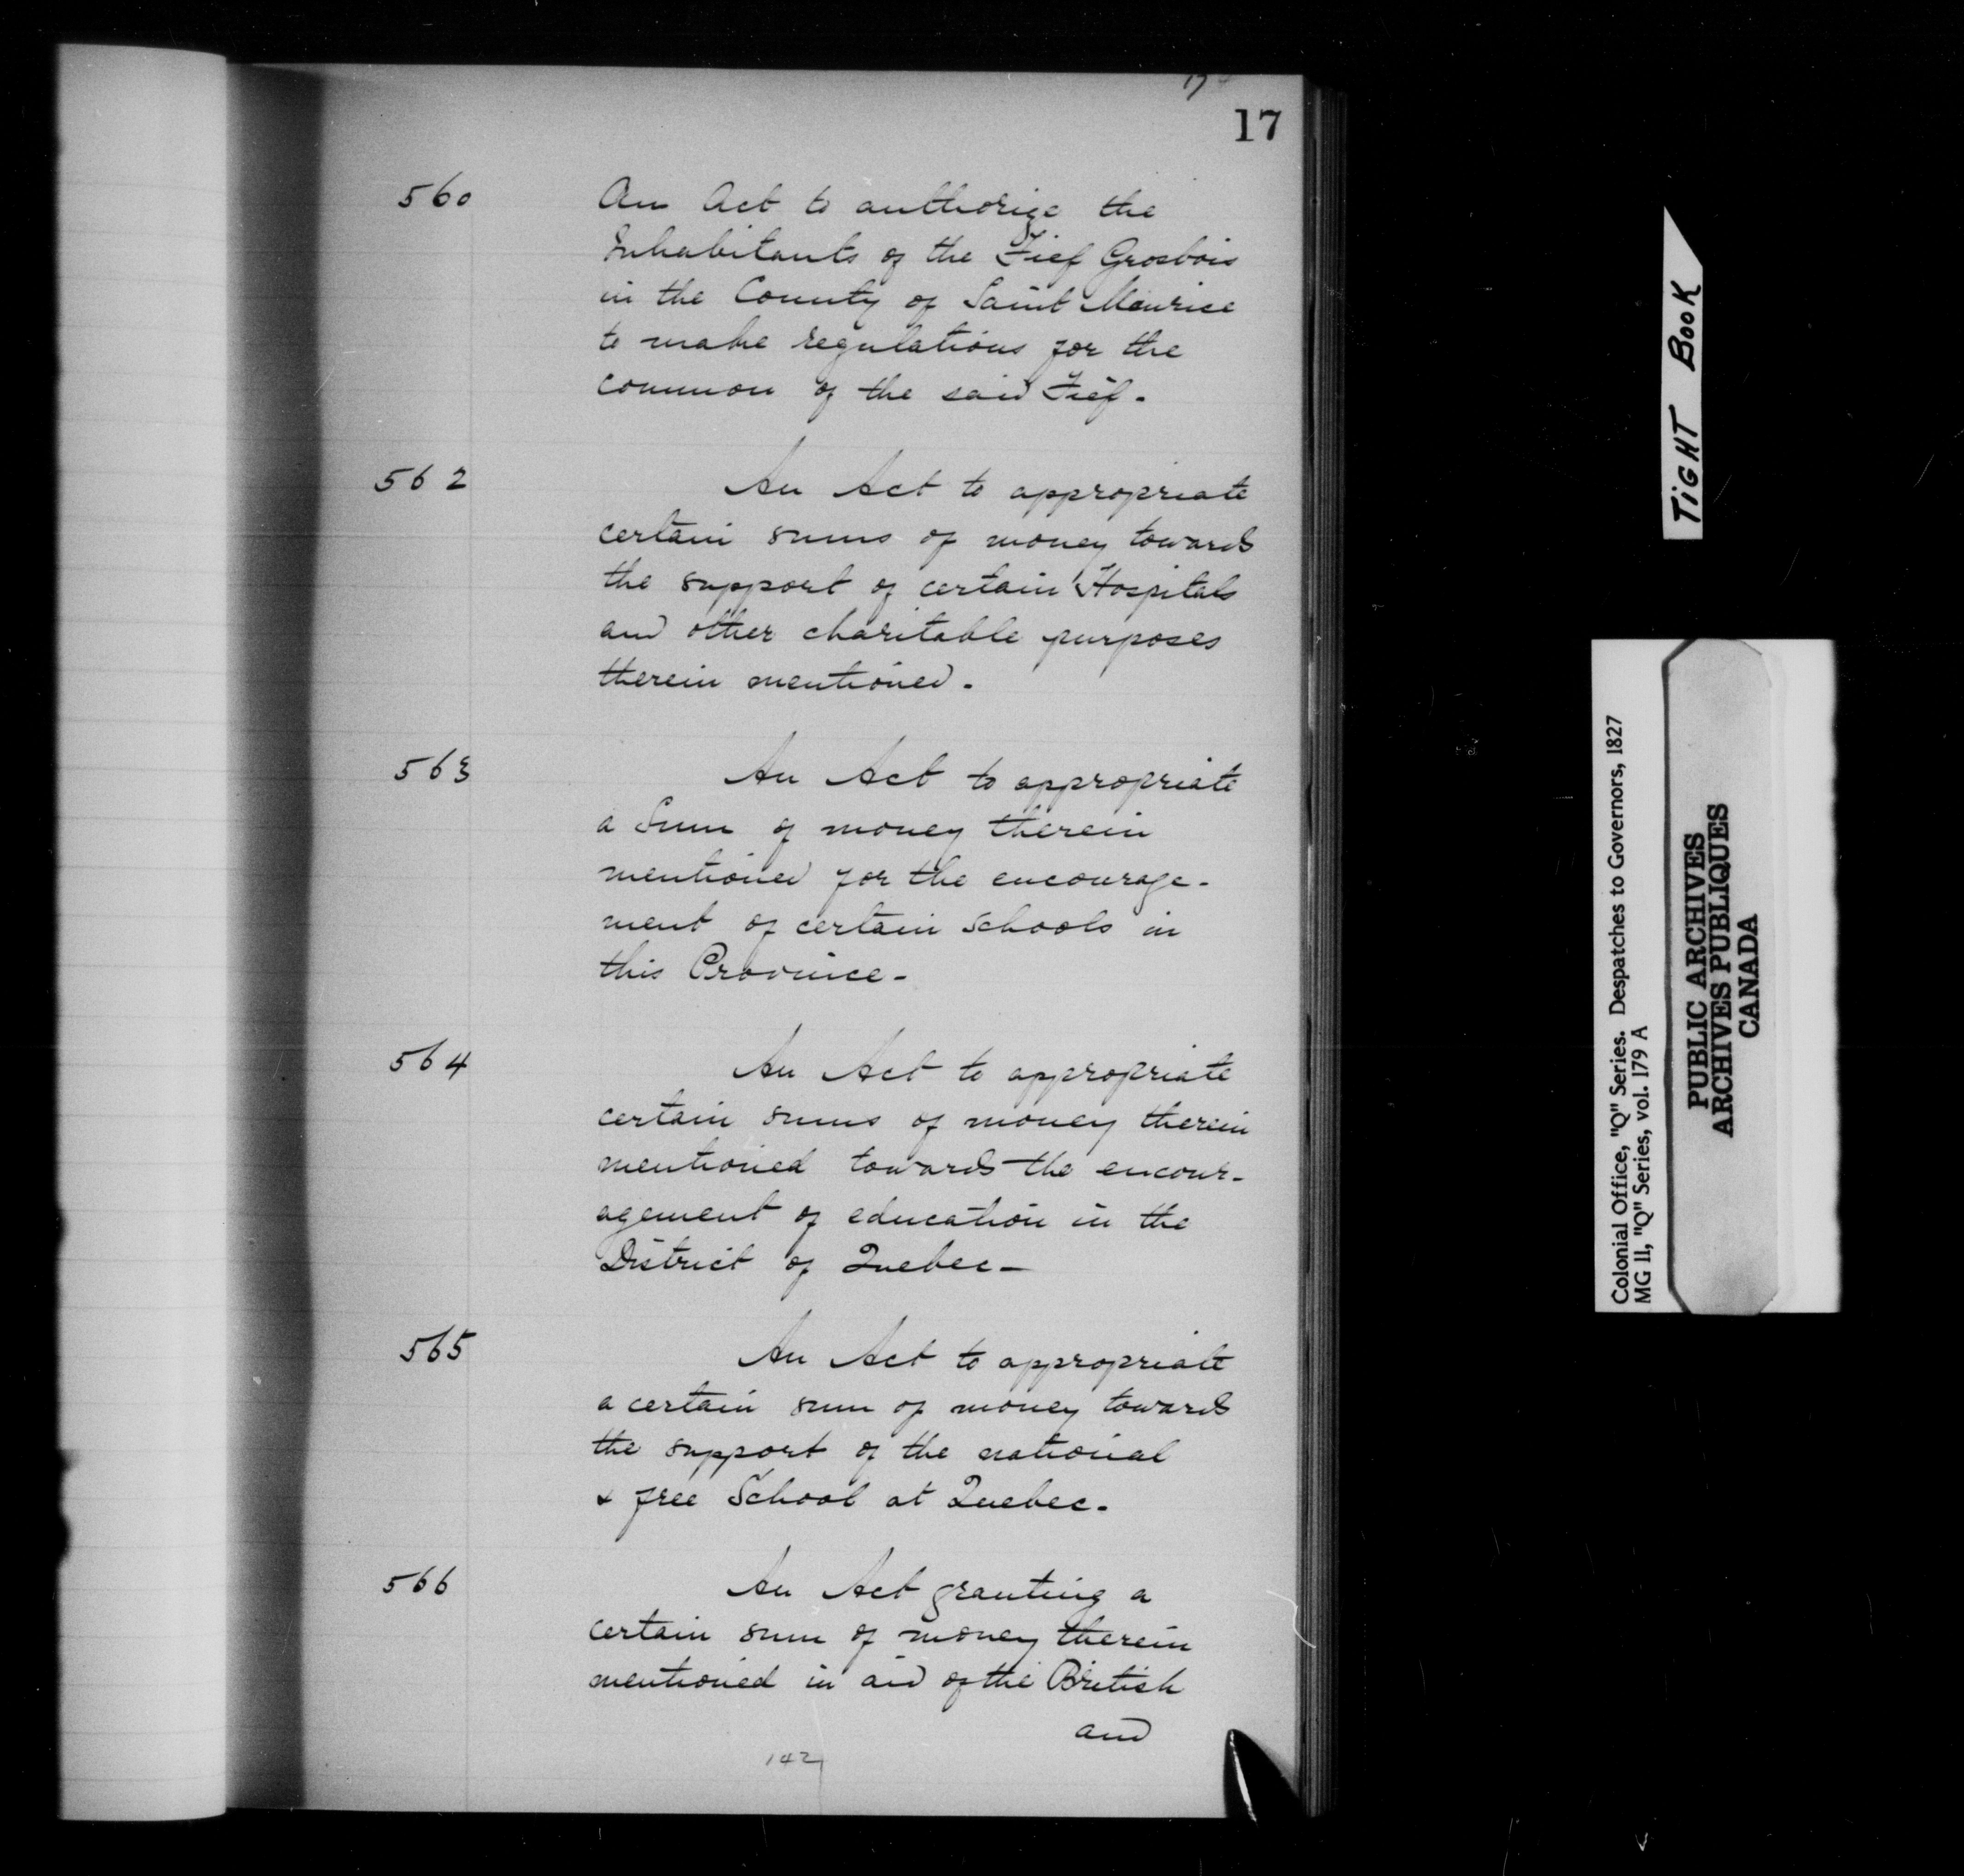 17
17
560 An Act to authorize the
Inhabitants of the Fief Grosbois
in the County of Saint Maurice
to make regulations for the
common of the said Fief.
562 An Act to appropriate
certain sums of money towards
the support of certain Hospitals
and other charitable purposes
therein mentioned.
563 An Act to appropriate
a Sum of money therein
mentioned for the encourage-
ment of certain schools in
this Province-
564 An Act to appropriate
certain sums of money therein
mentioned towards the encour-
agement of education in the
District of Quebec-
565 An Act to appropriate
a certain sum of money towards
the support of the national
& free School at Quebec.
566 An Act granting a
certain sum of money therein
mentioned in aid of the British
and
142
TIGHT BOOK
Colonial Office, "Q" Series. Despatches to Governors, 1827
MG 11, "Q" Series, vol. 179 A
PUBLIC ARCHIVES
ARCHIVES PUBLIQUES
CANADA